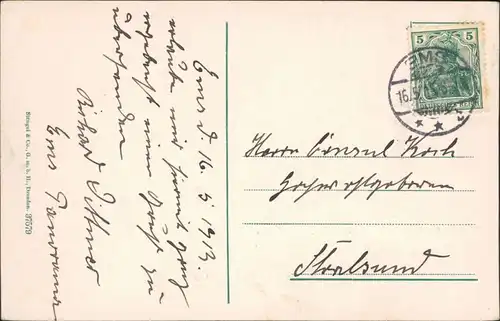 Ems d. 16. 5. 1913.
erlaube mir hiermit ganz
ergebenst einen Gruß zu
übersenden
Richard Dittmer
Ems Panorama
Stengel & Co., G. m. b. H., Dresden. 37579
5 5
EMS
16.5
Herrn Consul Koch
Hochwohlgeboren
Stralsund